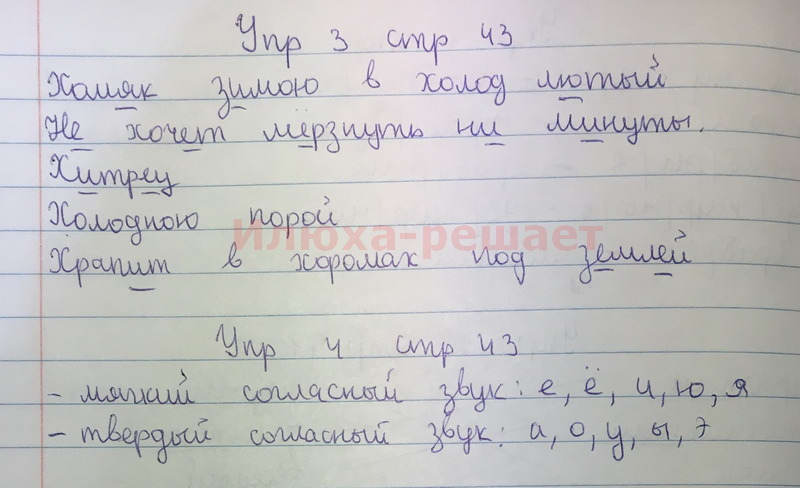 Упр 3 стр 43
Хомяк зимою в холод лютый
Не хочет мёрзнуть ни минуты.
Хитрец
Холодною порой
Илюха-решает
Храпит в хоромах под землей
Упр 4 стр 43
- мягкий согласный звук: е, ё, и, ю, я
- твердый согласный звук: а, о, у, ы, э